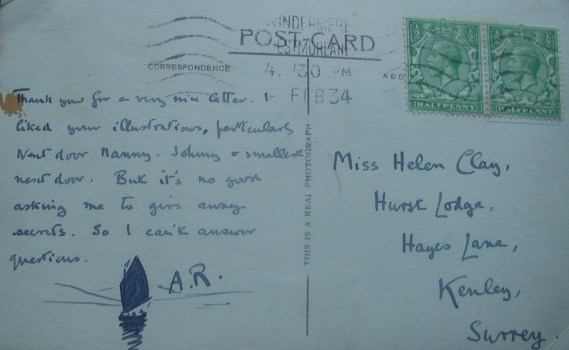 WINDERMERE
WESTMORLAND
POST CARD
CORRESPONDENCE
4. 30 PM
ADD
1 FEB 34
HALFPENNY
HALFPENNY
Thank you for a very nice letter. I
liked your illustrations, particularly
Next door Nanny. Johnny & smallest
next door. But it's no good
asking me to give away
secrets. So I can't answer
questions.
A.R.
THIS IS A REAL PHOTOGRAPH
Miss Helen Clay,
Hurst Lodge,
Hayes Lane,
Kenley,
Surrey.